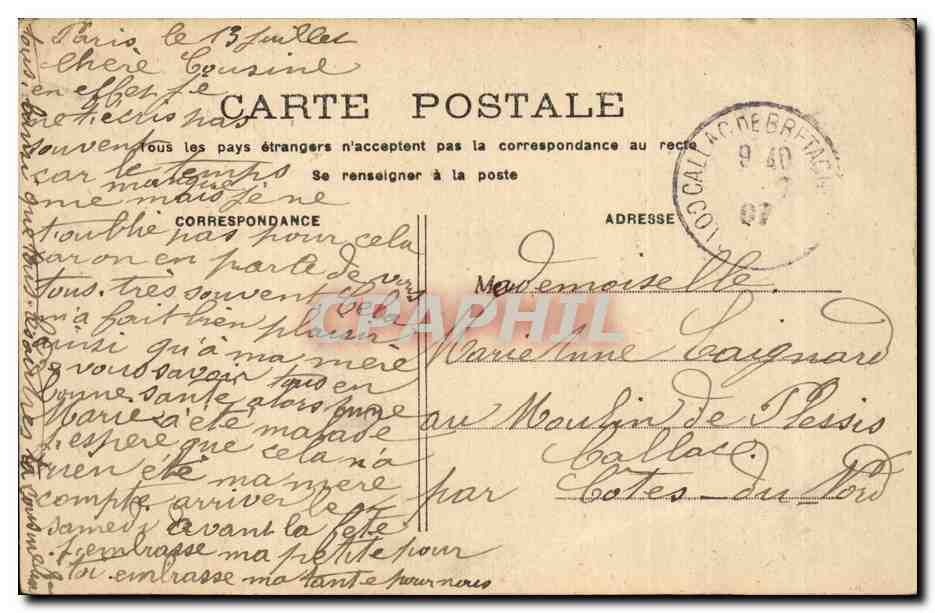 Paris le 13 juillet
Chère Cousine
en effet je
CARTE POSTALE
ne t'ecris pas
souvent
Tous les pays étrangers n'acceptent pas la correspondance au recto
car le temps
Se renseigner à la poste
manque
me mais je ne
CORRESPONDANCE
ADRESSE
t'oublie pas pour cela
car on en parle de vous
tous très souvent Cela
m'a fait bien plaisir
ainsi qu'à ma mère
vous savoir tous en
bonne santé alors
Marie a été malade
j'espère que cela n'a
rien été ma mère
compte arriver le
samedi avant la fête
J'embrasse ma petite pour
toi embrasse ma tante pour nous
tous, ainsi que
Mademoiselle
Marie Anne Caignard
au Moulin de Plessis
Callac
par Cotes-du-Nord
CALLAC DE BRETAGNE
9 40
07
CPAPHIL